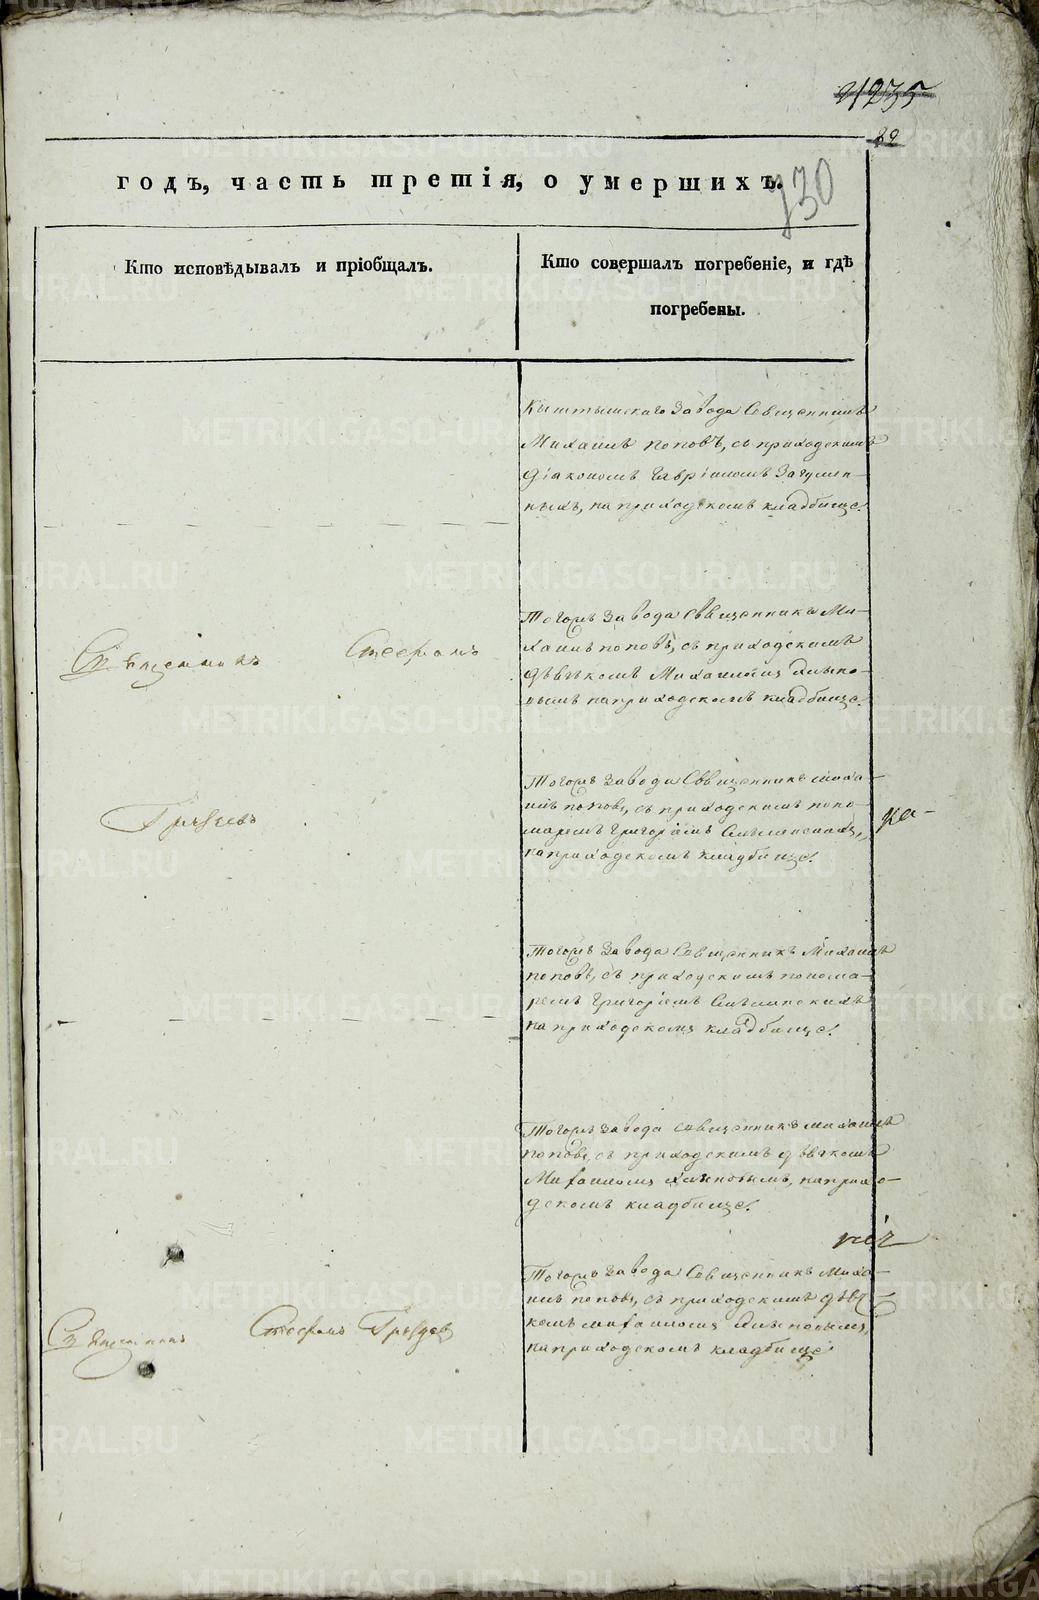 21235
82
годъ, часть третія, о умершихъ.
130
Кто исповѣдывалъ и пріобщалъ.
Кто совершалъ погребеніе, и гдѣ
погребены.
Кыштымскаго Завода Священникъ
Михаилъ поповъ, съ приходскимъ
Діакономъ Гавріиломъ Загумен-
ныхъ, на приходскомъ кладбище.
Тогожъ Завода Священникъ Ми-
хаилъ поповъ, съ приходскимъ
дьячкомъ Михаиломъ
на приходскомъ кладбище.
Священникъ Стефанъ
Тогожъ Завода Священникъ Миха-
илъ поповъ, съ приходскимъ поно-
маремъ Григоріемъ
на приходскомъ кладбище.
Тогожъ Завода Священникъ Михаилъ
поповъ, съ приходскимъ понома-
ремъ Григоріемъ
на приходскомъ кладбище.
Тогожъ Завода Священникъ Михаилъ
поповъ, съ приходскимъ дьячкомъ
Михаиломъ на прихо-
дскомъ кладбище.
Тогожъ Завода Священникъ Миха-
илъ поповъ, съ приходскимъ дьяч-
комъ Михаиломъ
на приходскомъ кладбище
Священникъ Стефанъ
METRIKI.GASO-URAL.RU